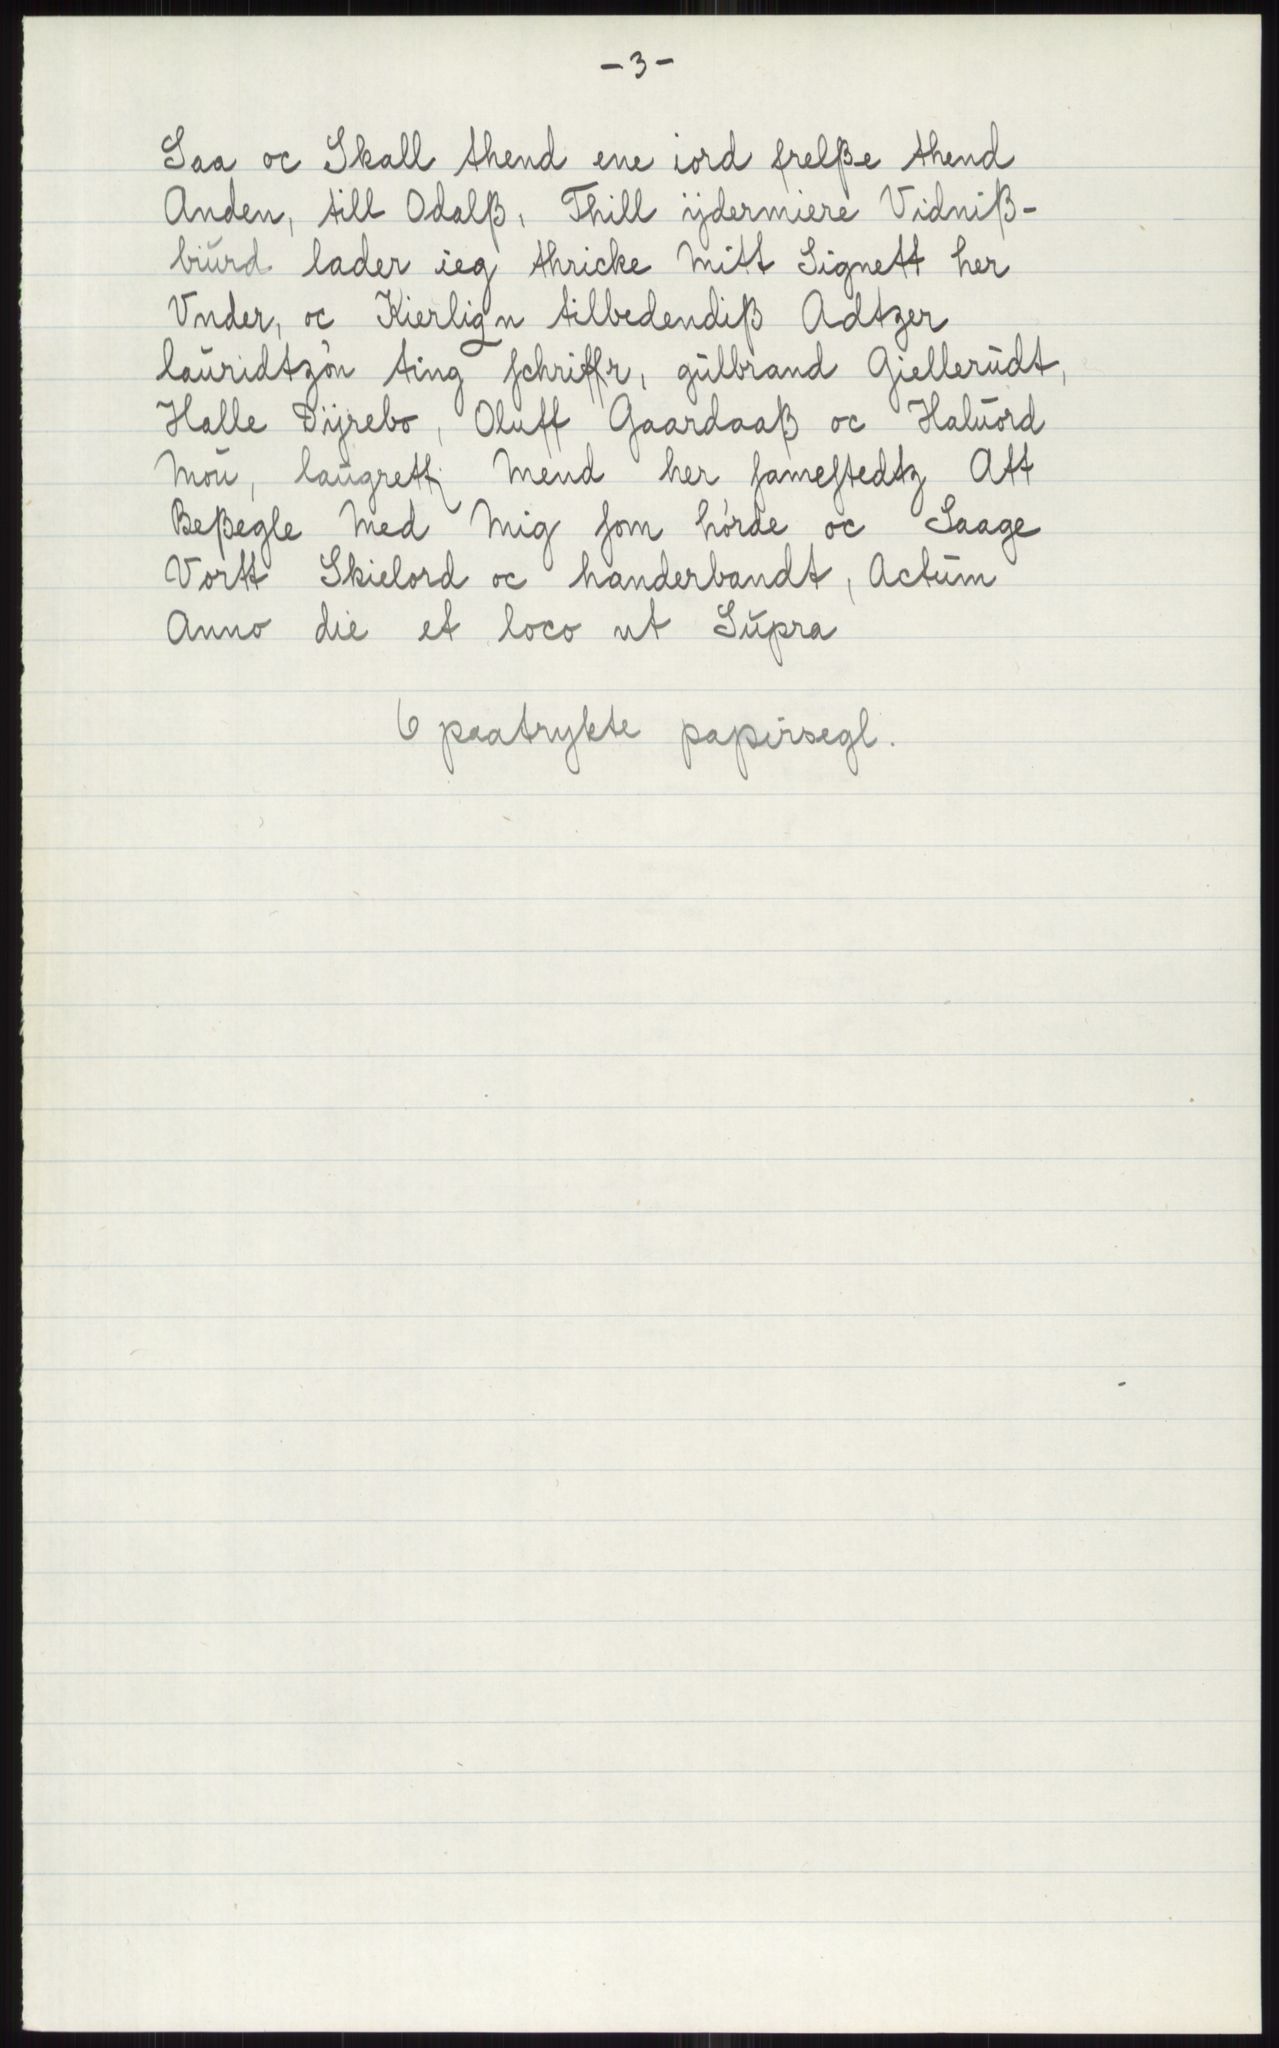 -3-
Saa oc Skall thend ene iord frelße thend
Anden, till Odalß, Thill ijdermiere Vidniß-
biūrd lader ieg thricke Mitt Signett her
Vnder, oc Kierlign tilbedendiß Adtzer
lauridtzón ting schriffr, gūlbrand Giellerūdt,
Halle Dÿrebo, Oluff Gaardaaß oc Halūord
Moū, laūgrettz Mend her samestedtz Att
Beßegle Med Mig som hórde oc Saage
Vortt Skielord oc handerbandt, Actūm
Anno die et loco ut Sūpra
6 paatrykte papirsegl.